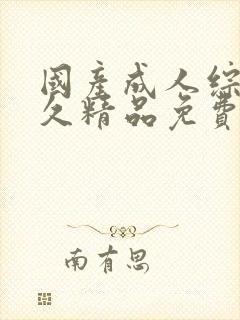 國產成人綜
久精品免費
南有思